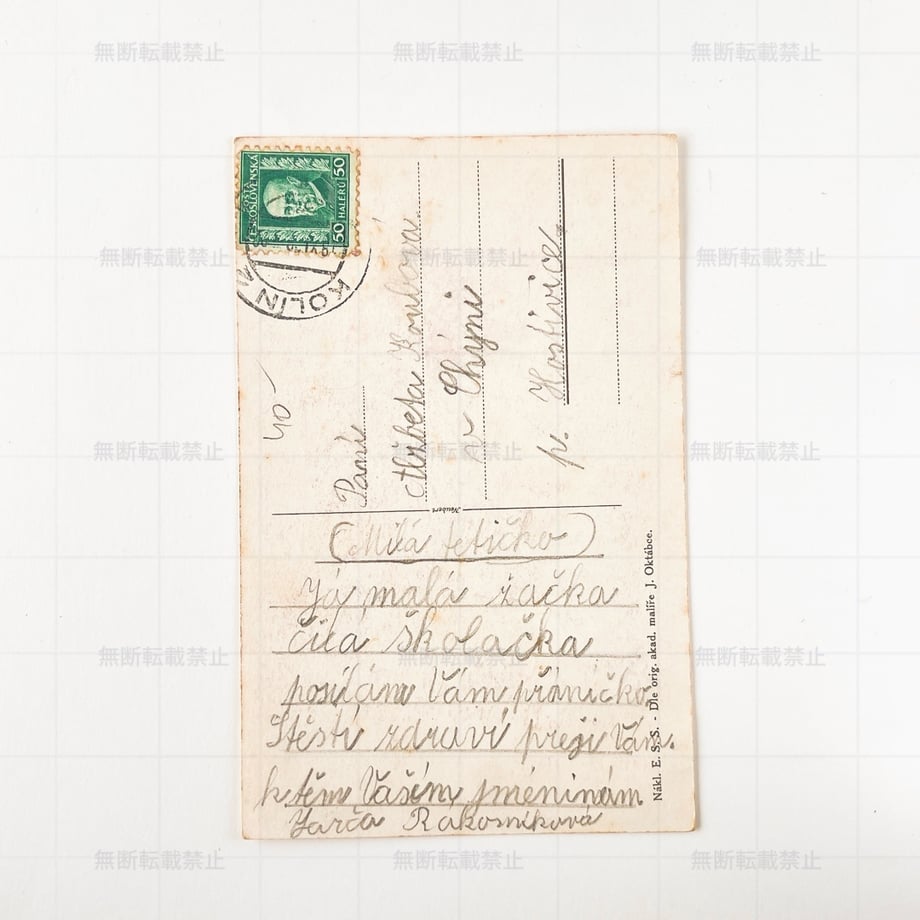 POŠTA
ČESKOSLOVENSKÁ
50 HALÉŘŮ 50
KOLÍN 1
40-
Paní
Alžběta Koubova
v Chýni
p. Hostivice
Neubert
(Milá tetičko)
Já malá žačka
čilá školačka
posílám Vám přáníčko
Štěstí zdraví přeji Vám.
k těm Vaším jmeninám
Jarča Rakosníková
Nákl. E. S. S. - Dle orig. akad. malíře J. Oktábce.
無断転載禁止 無断転載禁止 無断転載禁止
無断転載禁止 無断転載禁止 無断転載禁止
無断転載禁止 無断転載禁止 無断転載禁止
無断転載禁止 無断転載禁止 無断転載禁止
無断転載禁止 無断転載禁止 無断転載禁止